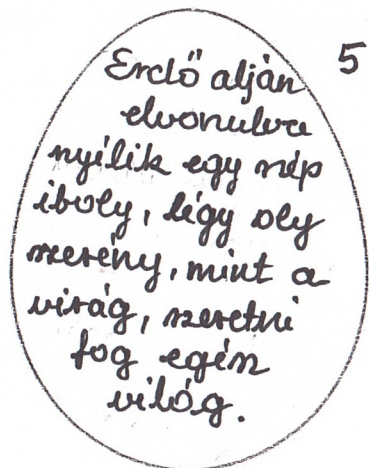 Erdő alján 5
elvonulva
nyílik egy szép
iboly, légy oly
szerény, mint a
virág, szeretni
fog egész
világ.